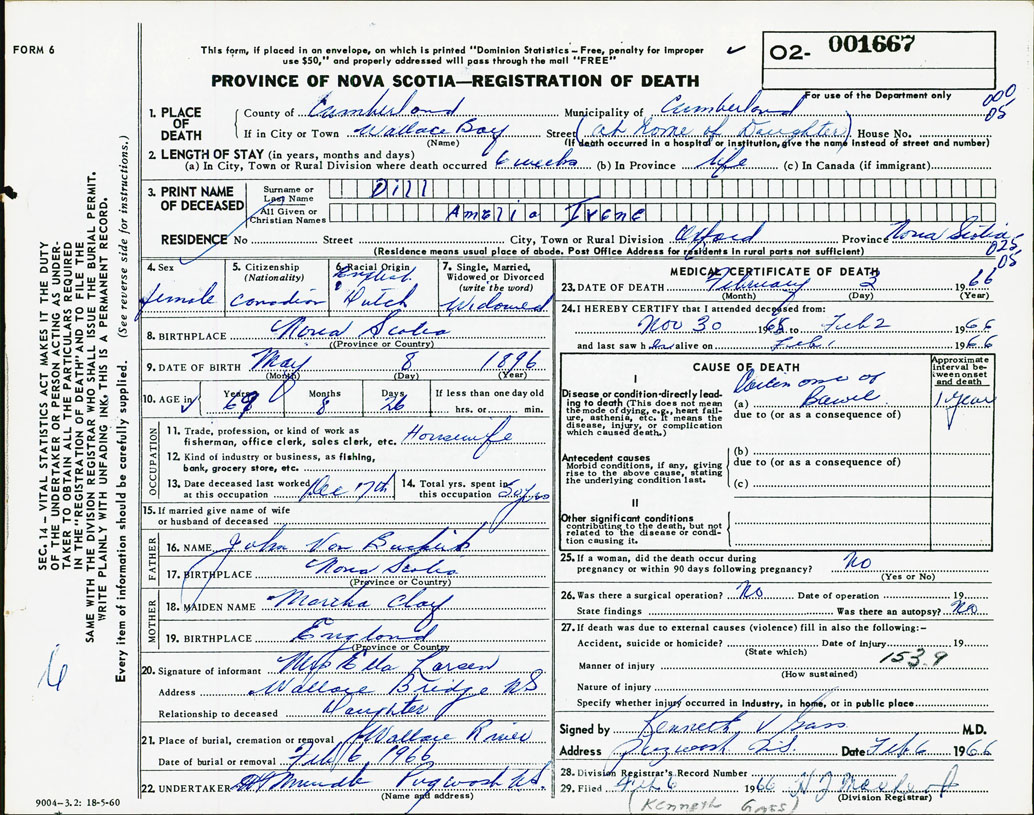 FORM 6
This form, if placed in an envelope, on which is printed "Dominion Statistics - Free, penalty for improper
use $50," and properly addressed will pass through the mail "FREE"
✓
02- 001667
For use of the Department only
PROVINCE OF NOVA SCOTIA—REGISTRATION OF DEATH
000
05
1. PLACE OF DEATH
County of Cumberland Municipality of Cumberland
If in City or Town Wallace Bay Street (at home of Daughter) House No.
(Name) (If death occurred in a hospital or institution, give the name instead of street and number)
2. LENGTH OF STAY (in years, months and days)
(a) In City, Town or Rural Division where death occurred 6 weeks (b) In Province life (c) In Canada (if immigrant)
3. PRINT NAME OF DECEASED
Surname or Last Name Dill
All Given or Christian Names Amelia Irene
RESIDENCE No Street City, Town or Rural Division Oxford Province Nova Scotia
(Residence means usual place of abode. Post Office Address for residents in rural parts not sufficient)
025
05
4. Sex female
5. Citizenship (Nationality) Canadian
6. Racial Origin English Dutch
7. Single, Married, Widowed or Divorced (write the word) Widowed
8. BIRTHPLACE Nova Scotia
(Province or Country)
9. DATE OF BIRTH May 8 1896
(Month) (Day) (Year)
10. AGE in ✓ Years 69 Months 8 Days 26 If less than one day old
hrs. or min.
OCCUPATION
11. Trade, profession, or kind of work as
fisherman, office clerk, sales clerk, etc. Housewife
12. Kind of industry or business, as fishing,
bank, grocery store, etc.
13. Date deceased last worked at this occupation Dec 17th
14. Total yrs. spent in this occupation
15. If married give name of wife
or husband of deceased
FATHER
16. NAME John Van
17. BIRTHPLACE Nova Scotia
(Province or Country)
MOTHER
18. MAIDEN NAME Martha Clay
19. BIRTHPLACE England
(Province or Country)
20. Signature of informant Mrs Ella Larsen
Address Wallace Bridge NS
Relationship to deceased Daughter
21. Place of burial, cremation or removal Wallace River
Date of burial or removal Feb 6 1966
22. UNDERTAKER Pugwash N.S.
(Name and address)
MEDICAL CERTIFICATE OF DEATH
23. DATE OF DEATH February 3 1966
(Month) (Day) (Year)
24. I HEREBY CERTIFY that I attended deceased from:
Nov 30 1965 to Feb 2 1966
and last saw her alive on Feb 1 1966
CAUSE OF DEATH
Approximate interval between onset and death
I
Disease or condition directly leading to death (This does not mean the mode of dying, e.g., heart failure, asthenia, etc. It means the disease, injury, or complication which caused death.)
(a) Carcinoma of Bowel 1 year
due to (or as a consequence of)
Antecedent causes
Morbid conditions, if any, giving rise to the above cause, stating the underlying condition last.
(b)
due to (or as a consequence of)
(c)
II
Other significant conditions
contributing to the death, but not related to the disease or condition causing it.
25. If a woman, did the death occur during
pregnancy or within 90 days following pregnancy? No
(Yes or No)
26. Was there a surgical operation? No Date of operation 19
State findings Was there an autopsy? No
27. If death was due to external causes (violence) fill in also the following:-
Accident, suicide or homicide? Date of injury 19
(State which)
153.9
Manner of injury
(How sustained)
Nature of injury
Specify whether injury occurred in industry, in home, or in public place
Signed by Kenneth V Gass M.D.
Address Pugwash N.S. Date Feb 6 1966
28. Division Registrar's Record Number
29. Filed Feb 6 1966
(Division Registrar)
(Kenneth Gass)
SEC. 14— VITAL STATISTICS ACT MAKES IT THE DUTY
OF THE UNDERTAKER OR PERSON ACTING AS UNDER-
TAKER TO OBTAIN ALL THE PARTICULARS REQUIRED
IN THE "REGISTRATION OF DEATH" AND TO FILE THE
SAME WITH THE DIVISION REGISTRAR WHO SHALL ISSUE THE BURIAL PERMIT.
WRITE PLAINLY WITH UNFADING INK, THIS IS A PERMANENT RECORD.
Every item of information should be carefully supplied. (See reverse side for instructions.)
6
9004-3.2: 18-5-60